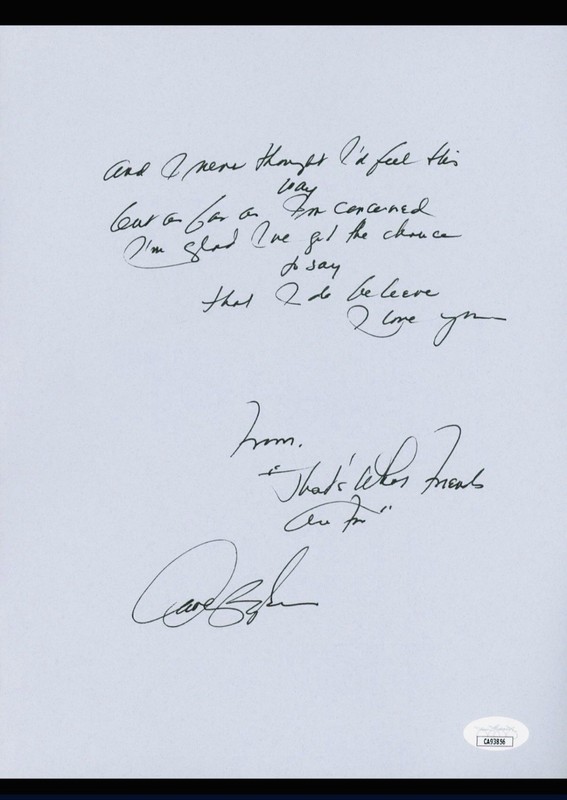 And I never thought I'd feel this
way
but as far as I'm concerned
I'm glad I've got the chance
to say
that I do believe
I love you
From.
"That's What Friends
Are For"
CA93856